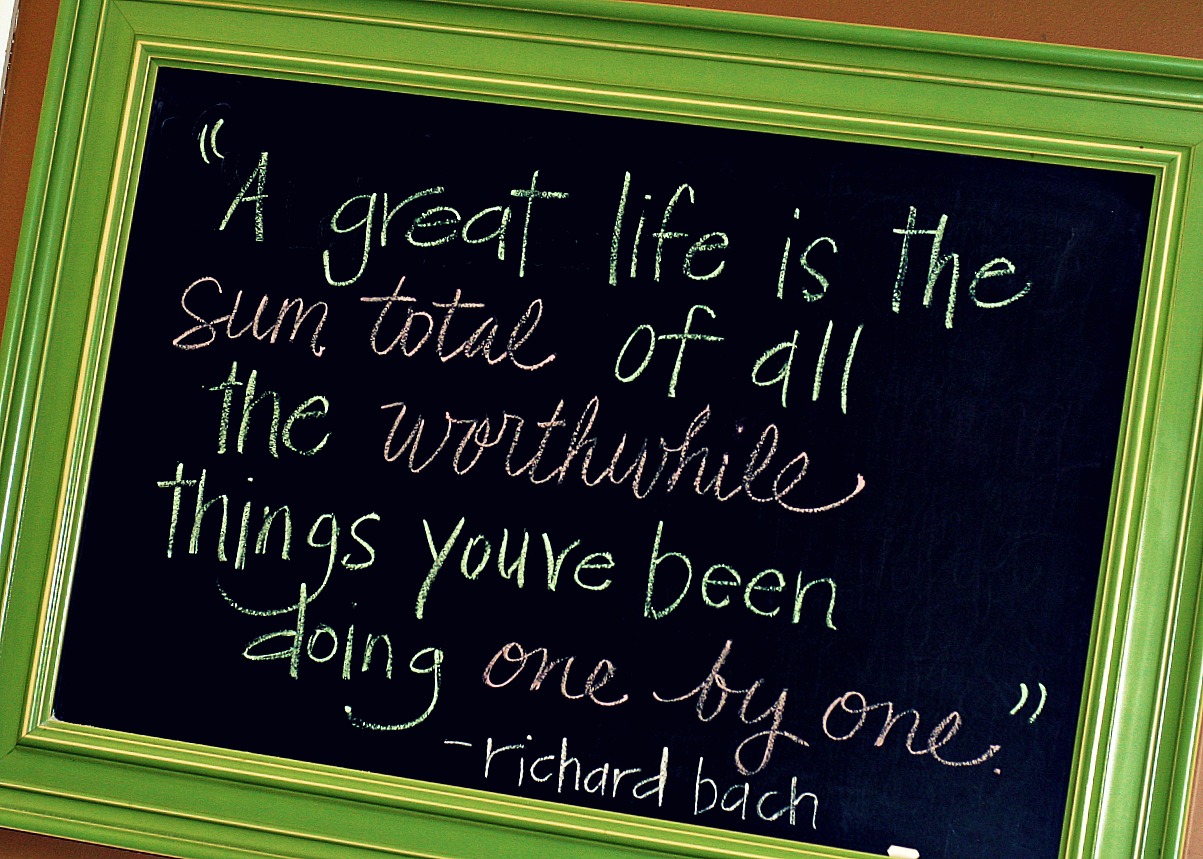 "A great life is the
sum total of all
the worthwhile
things youve been
doing one by one."
-richard bach